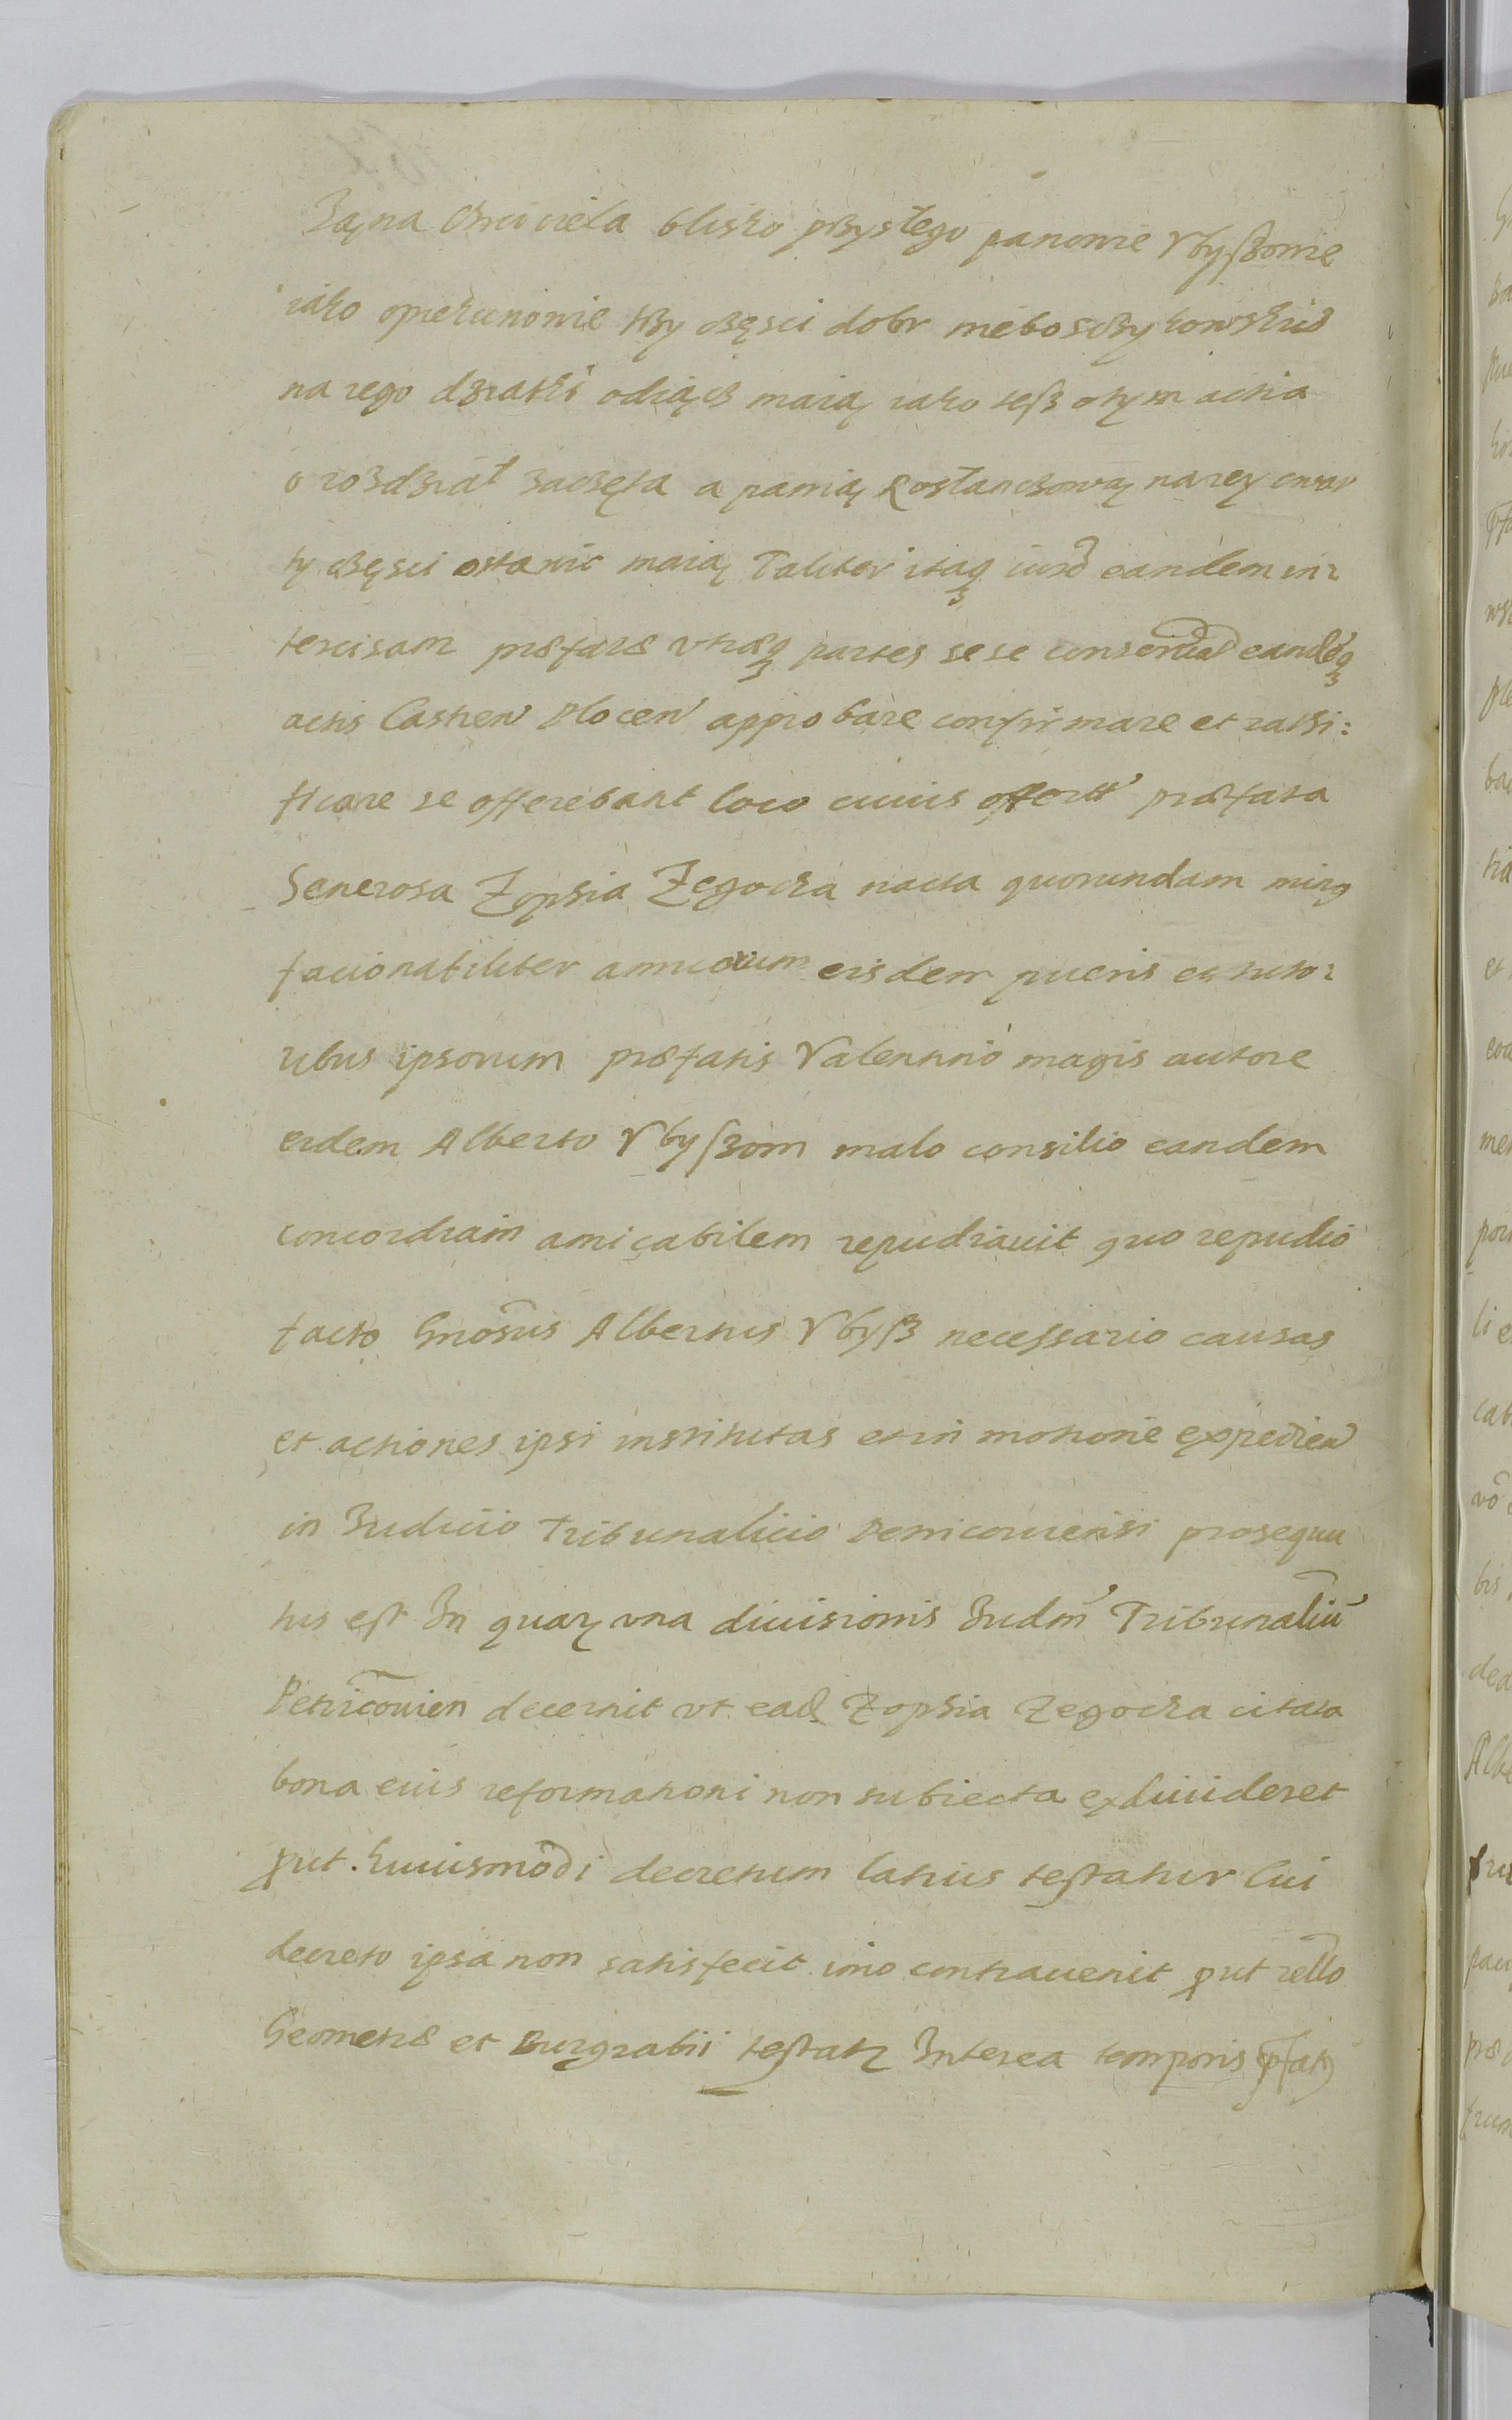 Jana Chrziciela blisko przyslego panowie Vbyszowie
iako opiekunowie trzy części dobr nieboszczykowskich
na iego dziatki odiącz maią iako tesz o tym actia
o rozdział zaczęta a panią Rosłanczową na iey czwar
ty części ostawic maią Taliter itaq iurd eandem in:
tercisam præfatæ vtræq partes sese conseruad eandeq
actis Castren Plocen approbare confirmare et rathi:
ficare se offerebant loco cuius offerttˀ præfata
Generosa Zophia Zegocka nacta quorundam minq
facionabiliter amicorum eisdem pueris et tuto:
ribus ipsorum præfatis Valentino magis autore
eidem Alberto Vbyszom malo consilio eandem
concordiam amicabilem repudiauit quo repudio
facto Gnosus Albertus Vbysz necessario causas
et actiones ipsi institutas et in motione expedien
in Judicio Tribunalicio Petricouiensi prosequu
tus est In quarz vna diuisionis Judm Tribunaliu
Petricouien decernit vt ead Zophia Zegocka citata
bona eius reformationi non subiecta exdiuideret
put huiusmodi decretum latius testatur Cui
decreto ipsa non satisfecit imo contrauenit put rello
Geometræ et Burgrabii testatr Interea temporis pfatq